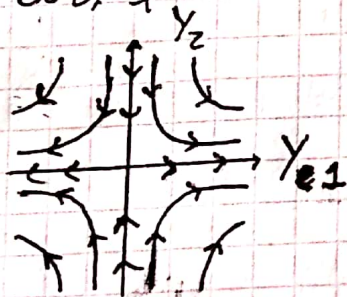 Y₂
Y₁